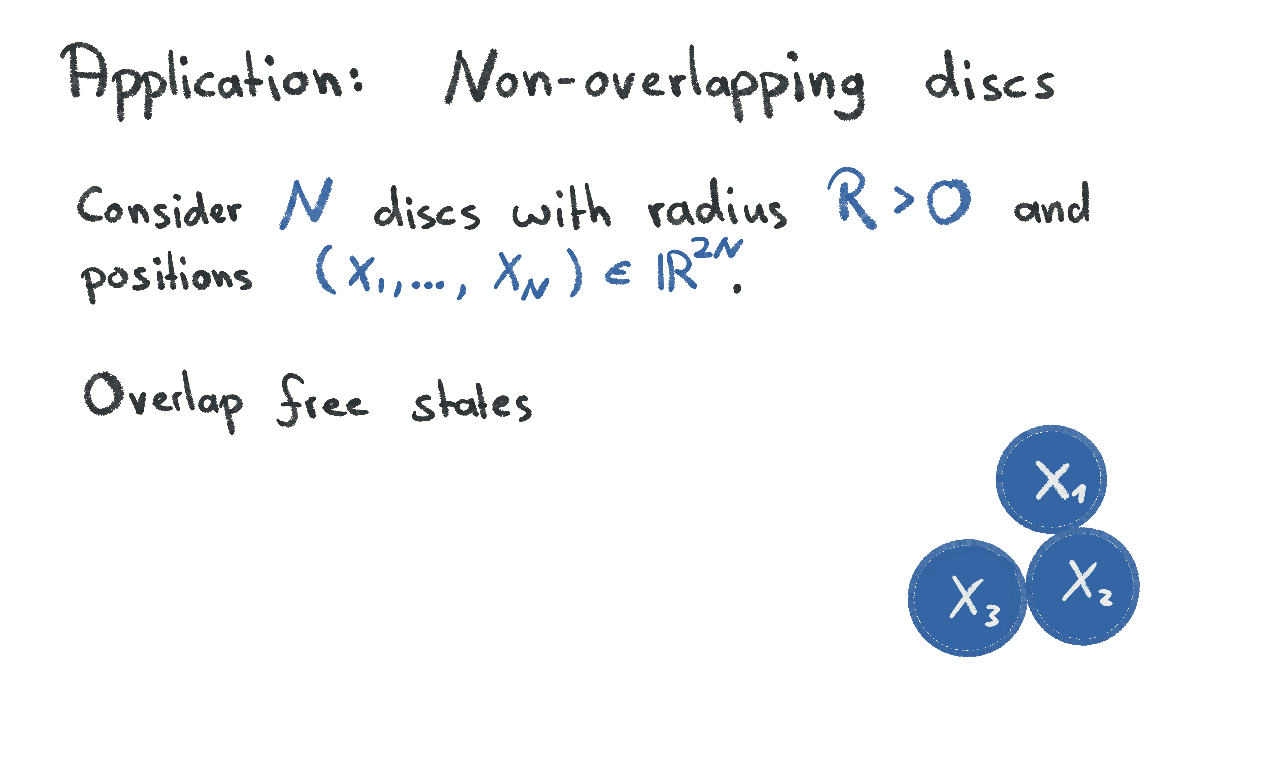 Application: Non-overlapping discs
Consider N discs with radius R > 0 and
positions (X₁,..., X_N) ∈ ℝ²ᴺ.
Overlap free states
X₁
X₂
X₃